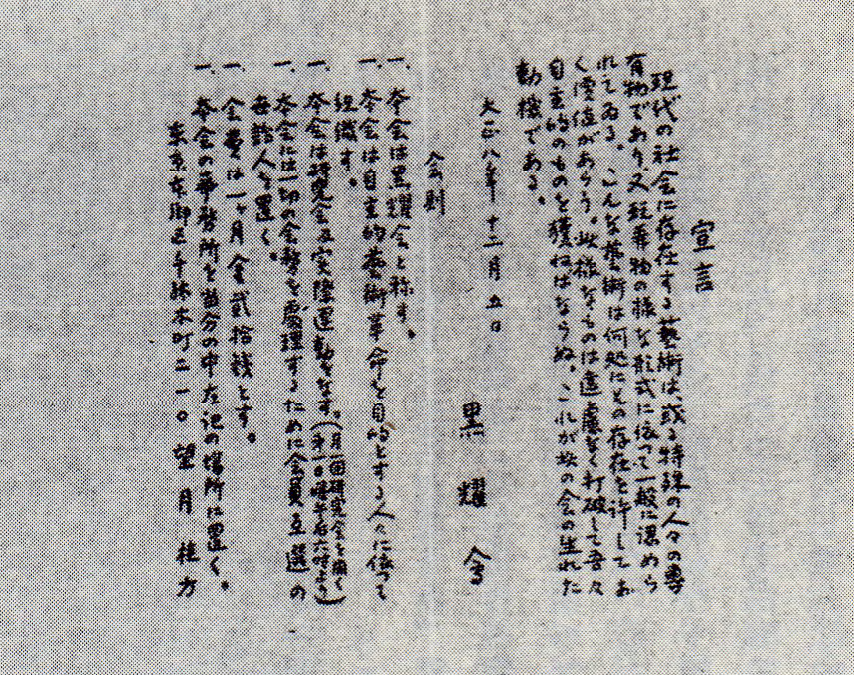 宣言
現代の社会に存在する藝術は、或る特殊の人々の専
有物であり又玩弄物の様な形式に依って一般に認めら
れてゐる。こんな藝術は何処にその存在を許してお
く価値があらう。此様なものは遠慮なく打破して吾々
自主的のものを獲ねばならぬ。これが此の会の生れた
動機である。
大正八年十二月五日
黒耀会
会則
一、本会は黒耀会と称す。
一、本会は自主的藝術革命を目的とする人々に依つて
組織す。
一、本会は研究会及実際運動をなす。(月一回研究会を開く
一、本会には一切の会務を処理するために会員互選の
世話人を置く。
一、会費は一ヶ月金弐拾銭とす。
一、本会の事務所を当分の中左記の場所に置く。
東京市 千駄木町二一〇 望月桂方